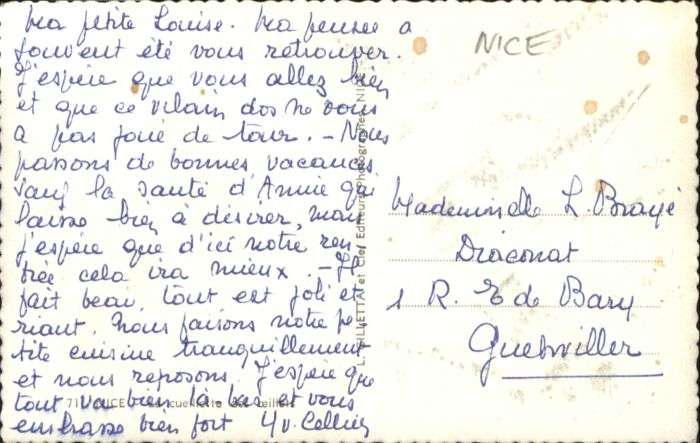 Ma petite Louise. Ma pensée a
souvent été vous retrouver.
J'espère que vous allez bien
et que ce vilain dos ne vous
a pas joué de tour. - Nous
passons de bonnes vacances
sauf la santé d'Annie qui
laisse bien à désirer, mais
j'espère que d'ici notre ren-
trée cela ira mieux. - Il
fait beau, tout est joli et
riant. Nous faisons notre pe-
tite cuisine tranquillement
et nous reposons. J'espère que
tout va bien là-bas et vous
embrasse bien fort
NICE
Mademoiselle L. Brayé
Diaconat
1 R. E. de Bary
Guebwiller
et Cie, Editeurs Photographes, NI
71 NICE